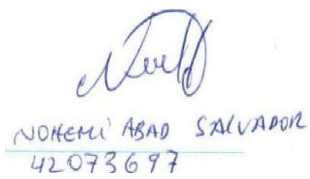 NOHEMÍ ABAD SALVADOR
42073697